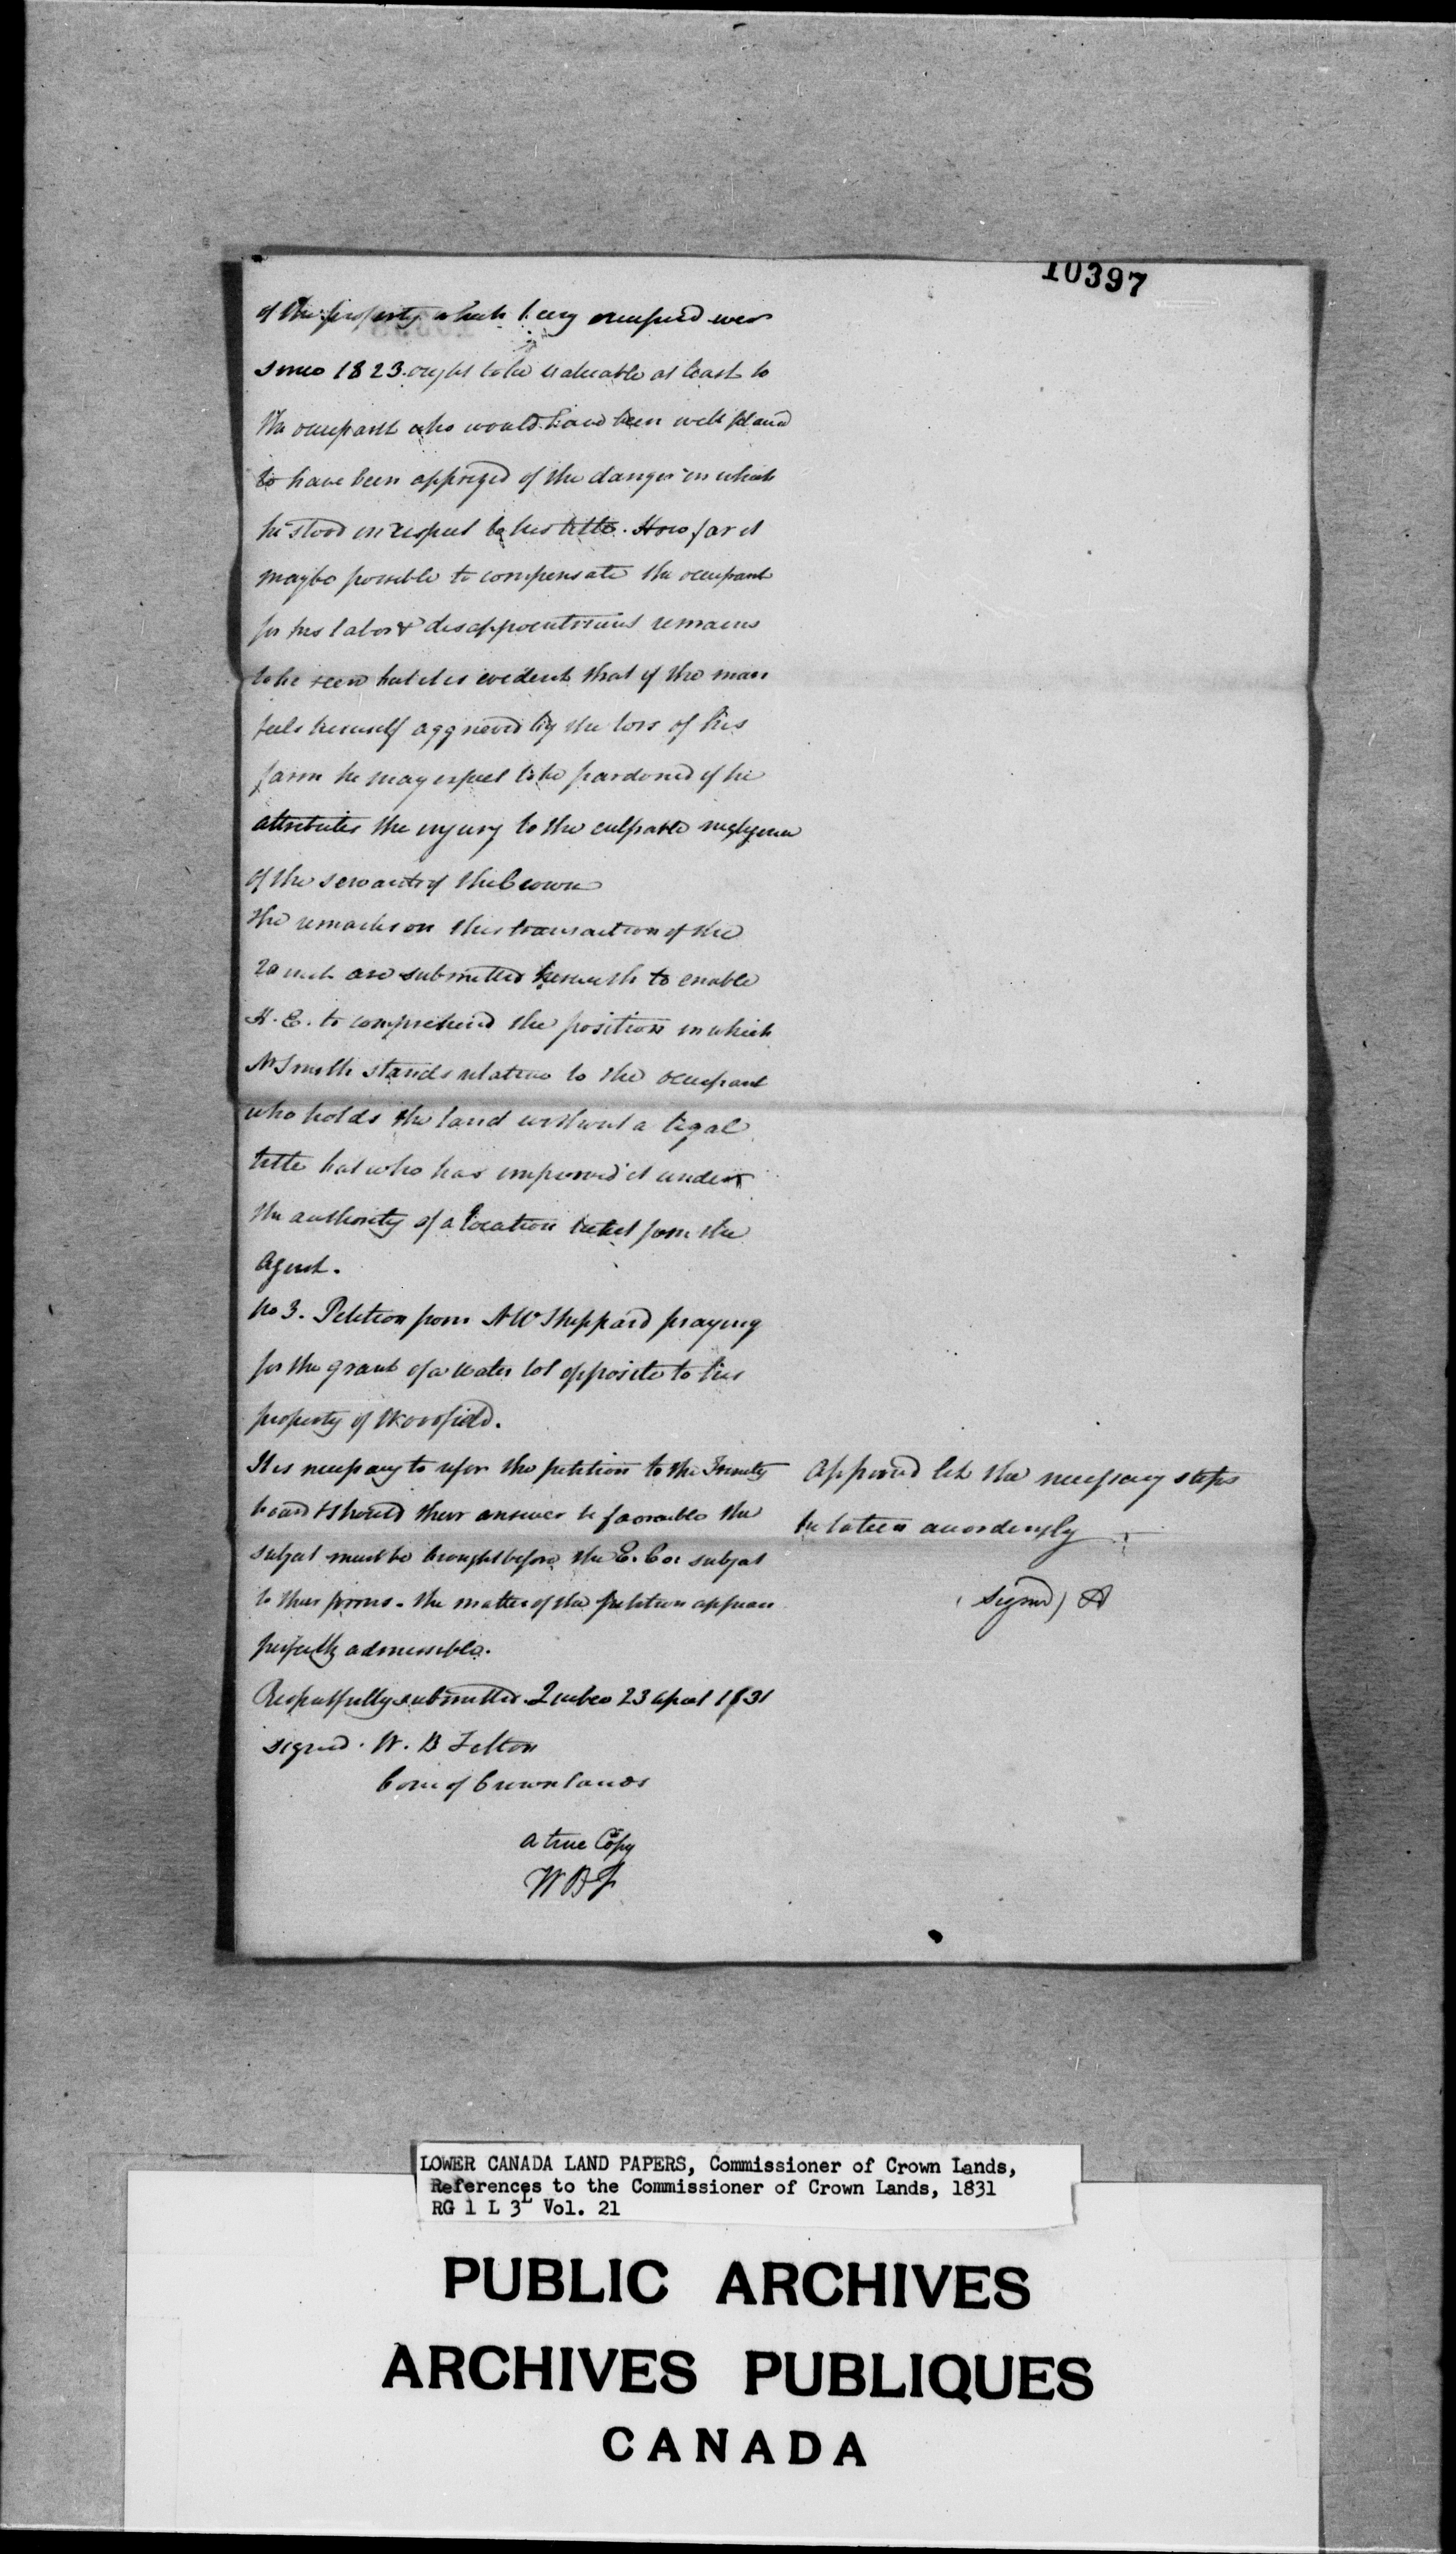 10397
of the property which being occupied ever
since 1823 ought to be valuable at least to
the occupant who would have been well pleased
to have been apprized of the danger in which
he stood in respect to his title. How far it
may be possible to compensate the occupant
for his labor & disappointment remains
to be seen but it is evident that if the man
feels himself aggrieved by the loss of his
farm he may expect to be pardoned if he
attributes the injury to the culpable neglygence
of the servants of the Crown
The remarks on this transaction of the
20 inst are submitted herewith to enable
H. E. to comprehend the position in which
Mr Smith stands relative to the occupant
who holds the land without a legal
title but who has improved it under
the authority of a location ticket from the
Agent.
No 3. Petition from Mr W Sheppard praying
for the grant of a water lot opposite to his
property of Woodfield.
It is necessary to refer the petition to the Trinity
board & should their answer be favorable the
subject must be brought before the E. Co: subject
to their . The matter of the petition appears
perfectly admissible.
Respectfully submitted Quebec 23 April 1831
signed. W. B Felton
Com of Crown Lands
a true Copy
WBF
Approved let the necessary steps
be taken accordingly
(signed) A
LOWER CANADA LAND PAPERS, Commissioner of Crown Lands,
References to the Commissioner of Crown Lands, 1831
RG 1 L 3L Vol. 21
PUBLIC ARCHIVES
ARCHIVES PUBLIQUES
CANADA